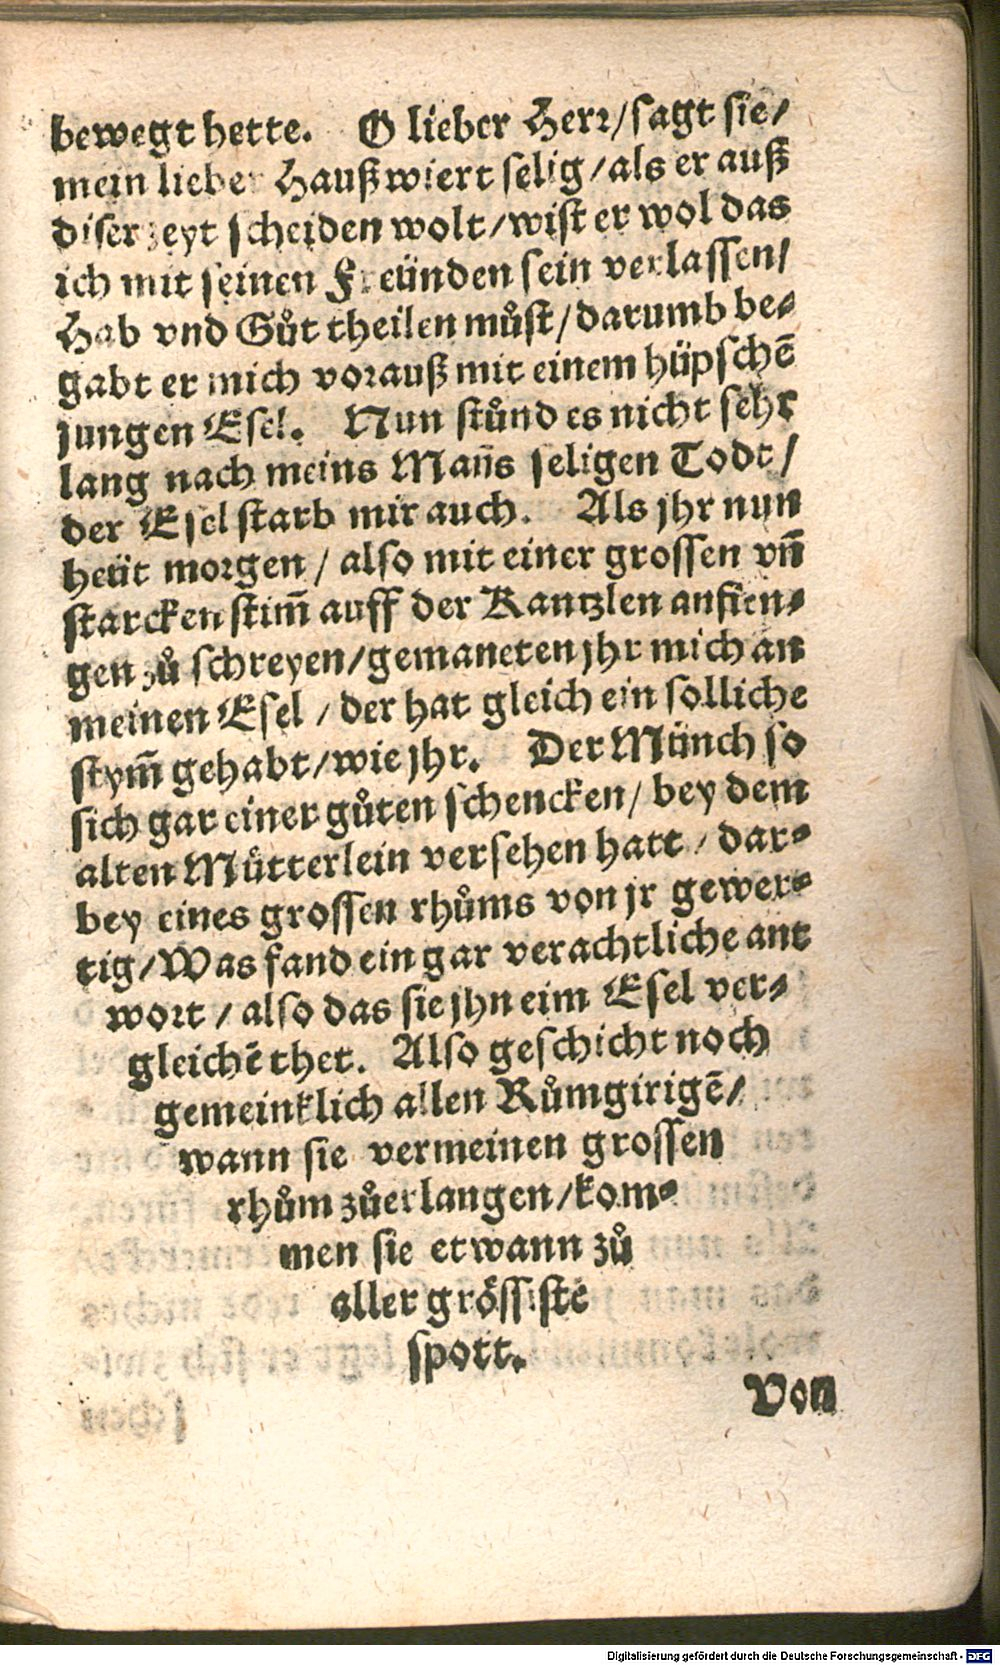 bewegt hette. O lieber Herr/sagt sie/
mein lieber Haußwiert selig/als er auß
diser zeyt scheiden wolt/wist er wol das
ich mit seinen Freünden sein verlassen/
Hab vnd Gůt theilen můst/darumb be-
gabt er mich vorauß mit einem hüpschē
jungen Esel. Nun stůnd es nicht sehr
lang nach meins Mañs seligen Todt/
der Esel starb mir auch. Als jhr nun
heüt morgen/also mit einer grossen vñ
starcken stim̃ auff der Kantzlen anfien-
gen zů schreyen/gemaneten jhr mich an
meinen Esel/der hat gleich ein solliche
stym̃ gehabt/wie jhr. Der Münch so
sich gar einer gůten schencken/bey dem
alten Mütterlein versehen hatt/dar-
bey eines grossen rhůms von jr gewer-
tig/Was fand ein gar verachtliche ant
wort/also das sie jhn eim Esel ver-
gleichē thet. Also geschicht noch
gemeinklich allen Růmgirigē/
wann sie vermeinen grossen
rhům zůerlangen/kom-
men sie etwann zů
aller grössistē
spott.
Von
Digitalisierung gefördert durch die Deutsche Forschungsgemeinschaft - DFG